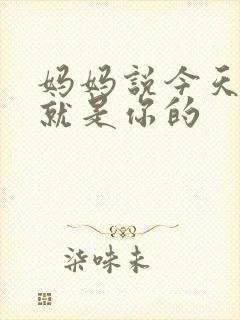 妈妈説今天
就是你的
柒味未